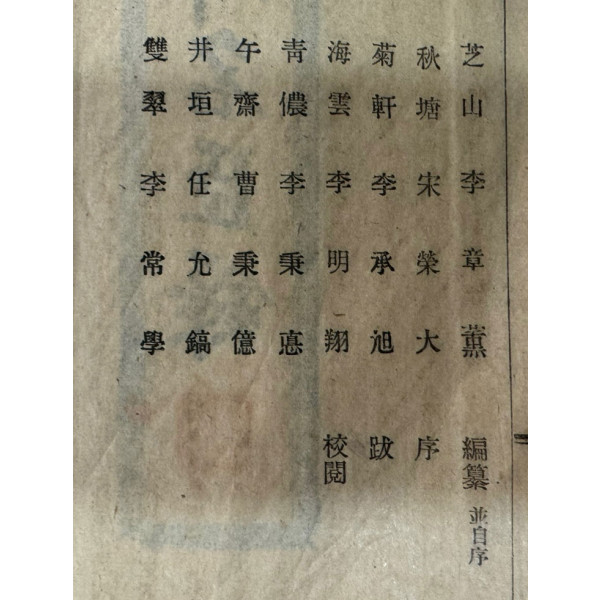 芝山 李章薰 編纂 並自序
秋塘 宋榮大 序
菊軒 李承旭 跋
海雲 李明翔 校閱
靑儂 李秉悳
午齋 曹秉億
井垣 任允鎬
雙翠 李常學